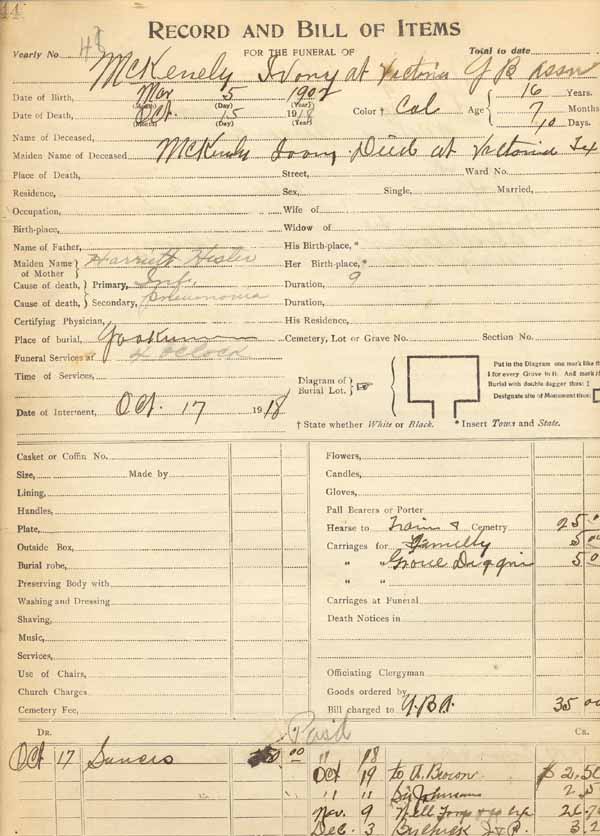 44
RECORD AND BILL OF ITEMS
Yearly No 48 FOR THE FUNERAL OF Total to date
McKenely Ivory at Victoria Y B Assn
Date of Birth, Mar 5 1902 16 Years.
(Month) (Day) (Year)
Date of Death, Oct. 15 1918 Color † Col Age 7 Months
(Month) (Day) (Year) 10 Days.
Name of Deceased,
Maiden Name of Deceased McKenely Ivory Died at Victoria Tex
Place of Death, Street, Ward No.
Residence, Sex, Single, Married,
Occupation, Wife of
Birth-place, Widow of
Name of Father, His Birth-place, *
Maiden Name of Mother Harriett Hesler Her Birth-place, *
Cause of death, Primary, Inf. Duration, 9
Cause of death, Secondary, Pneumonia Duration,
Certifying Physician, His Residence,
Place of burial, Yoakum Cemetery, Lot or Grave No. Section No.
Funeral Services at 4 oclock
Time of Services,
Diagram of Burial Lot.
Put in the Diagram one mark like th
I for every Grave in it. And mark th
Burial with double dagger thus: ‡
Designate site of Monument thus:
Date of Interment, Oct. 17 1918
† State whether White or Black. * Insert Town and State.
Casket or Coffin No. Flowers,
Size, Made by Candles,
Lining, Gloves,
Handles, Pall Bearers or Porter
Plate, Hearse to Train & Cemetry 25
Outside Box, Carriages for Familly 5 00
Burial robe, " " Grove Diggin 5 0
Preserving Body with " "
Washing and Dressing Carriages at Funeral
Shaving, Death Notices in
Music,
Services,
Use of Chairs, Officiating Clergyman
Church Charges Goods ordered by
Cemetery Fee, Bill charged to Y.B.A. 35 00
DR. Paid CR.
Oct 17 00 " 18
Oct 19 to A. 2.50
" " By Johnson
Nov. 9
Dec. 3